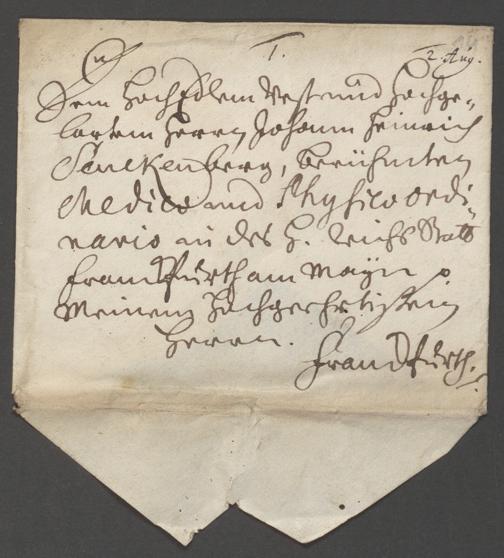 T. 2. Aug.
Dem HochEdlem Vest und Hochge-
lartem Herrn Johann Heinrich
Senckenberg, berühmten
Medico und Physico ordi-
nario in des H. Reichs Statt
Franckfurth am Mayn
Meinem Hochgeehrtisten
Herrn.
Franckfurth.